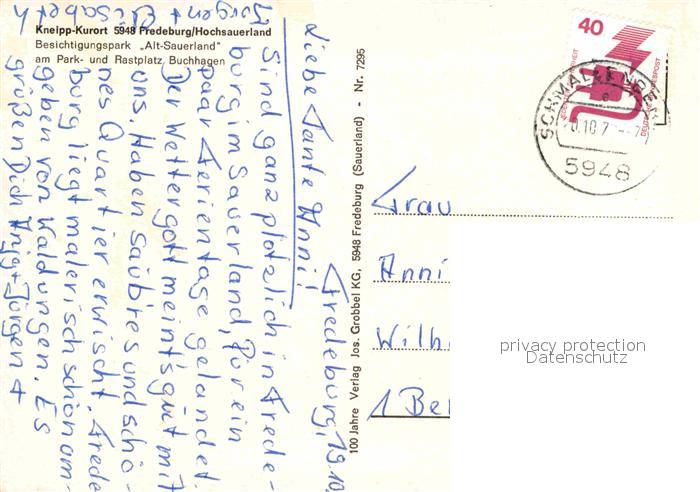 Kneipp-Kurort 5948 Fredeburg/Hochsauerland
Besichtigungspark „Alt-Sauerland"
am Park- und Rastplatz Buchhagen
Fredeburg, 19.10.
Liebe Tante Anni!
Sind ganz plötzlich in Frede-
burg im Sauerland, für ein
paar Ferientage gelandet.
Der Wettergott meints gut mit
uns. Haben saubres und schö-
nes Quartier erwischt. Frede
burg liegt malerisch schön am-
geben von Waldungen. Es
grüßen Dich Jürgen +
Jürgen + Elisabeth
100 Jahre Verlag Jos. Grobbel KG, 5948 Fredeburg (Sauerland) - Nr. 7295
40
DEUTSCHE BUNDESPOST
SCHMALLENBERG
5948
Frau
Anni
Wilh
1 Ber
privacy protection
Datenschutz